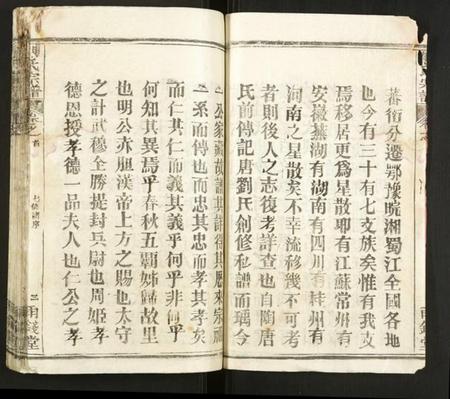 蕃衍分遷鄂豫皖湘蜀江全國各地
也今有三十有七支族矣惟有我支
焉移居更爲星散耶有江蘇常州有
安徽蕪湖有湖南有四川有桂州有
海南之星散矣不幸流移幾不可考
者則後人之志復考詳查也自陶唐
氏前傳記唐劉氏創修私譜而瑀今
公彖蘇故譜其詳得其歷來宗祠
一系而傳也而忠其忠而孝其孝矣
而仁其仁而義其義乎何乎非何乎
何知其異焉乎春秋五霸姊歸故里
也明公亦胆漢帝上方之賜也太守
之計武穆全勝提封兵尉也周姬孝
德恩授孝德一品夫人也仁公之孝
氏宗譜
首
二 甫錢堂